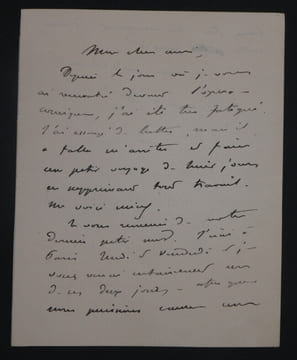 Mon cher ami,
Depuis le jour où je vous
ai rencontré devant l'Opéra-
comique, j'ai été très fatigué.
J'ai essayé de lutter, mais il
a fallu m'arrêter et faire
un petit voyage de huit jours
en supprimant tout travail.
Me voici mieux.
Je vous remercie de votre
dernier petit mot. J'irai à
Paris lundi & vendredi & je
vous verrai certainement un
de ces deux jours
nous puissions causer un